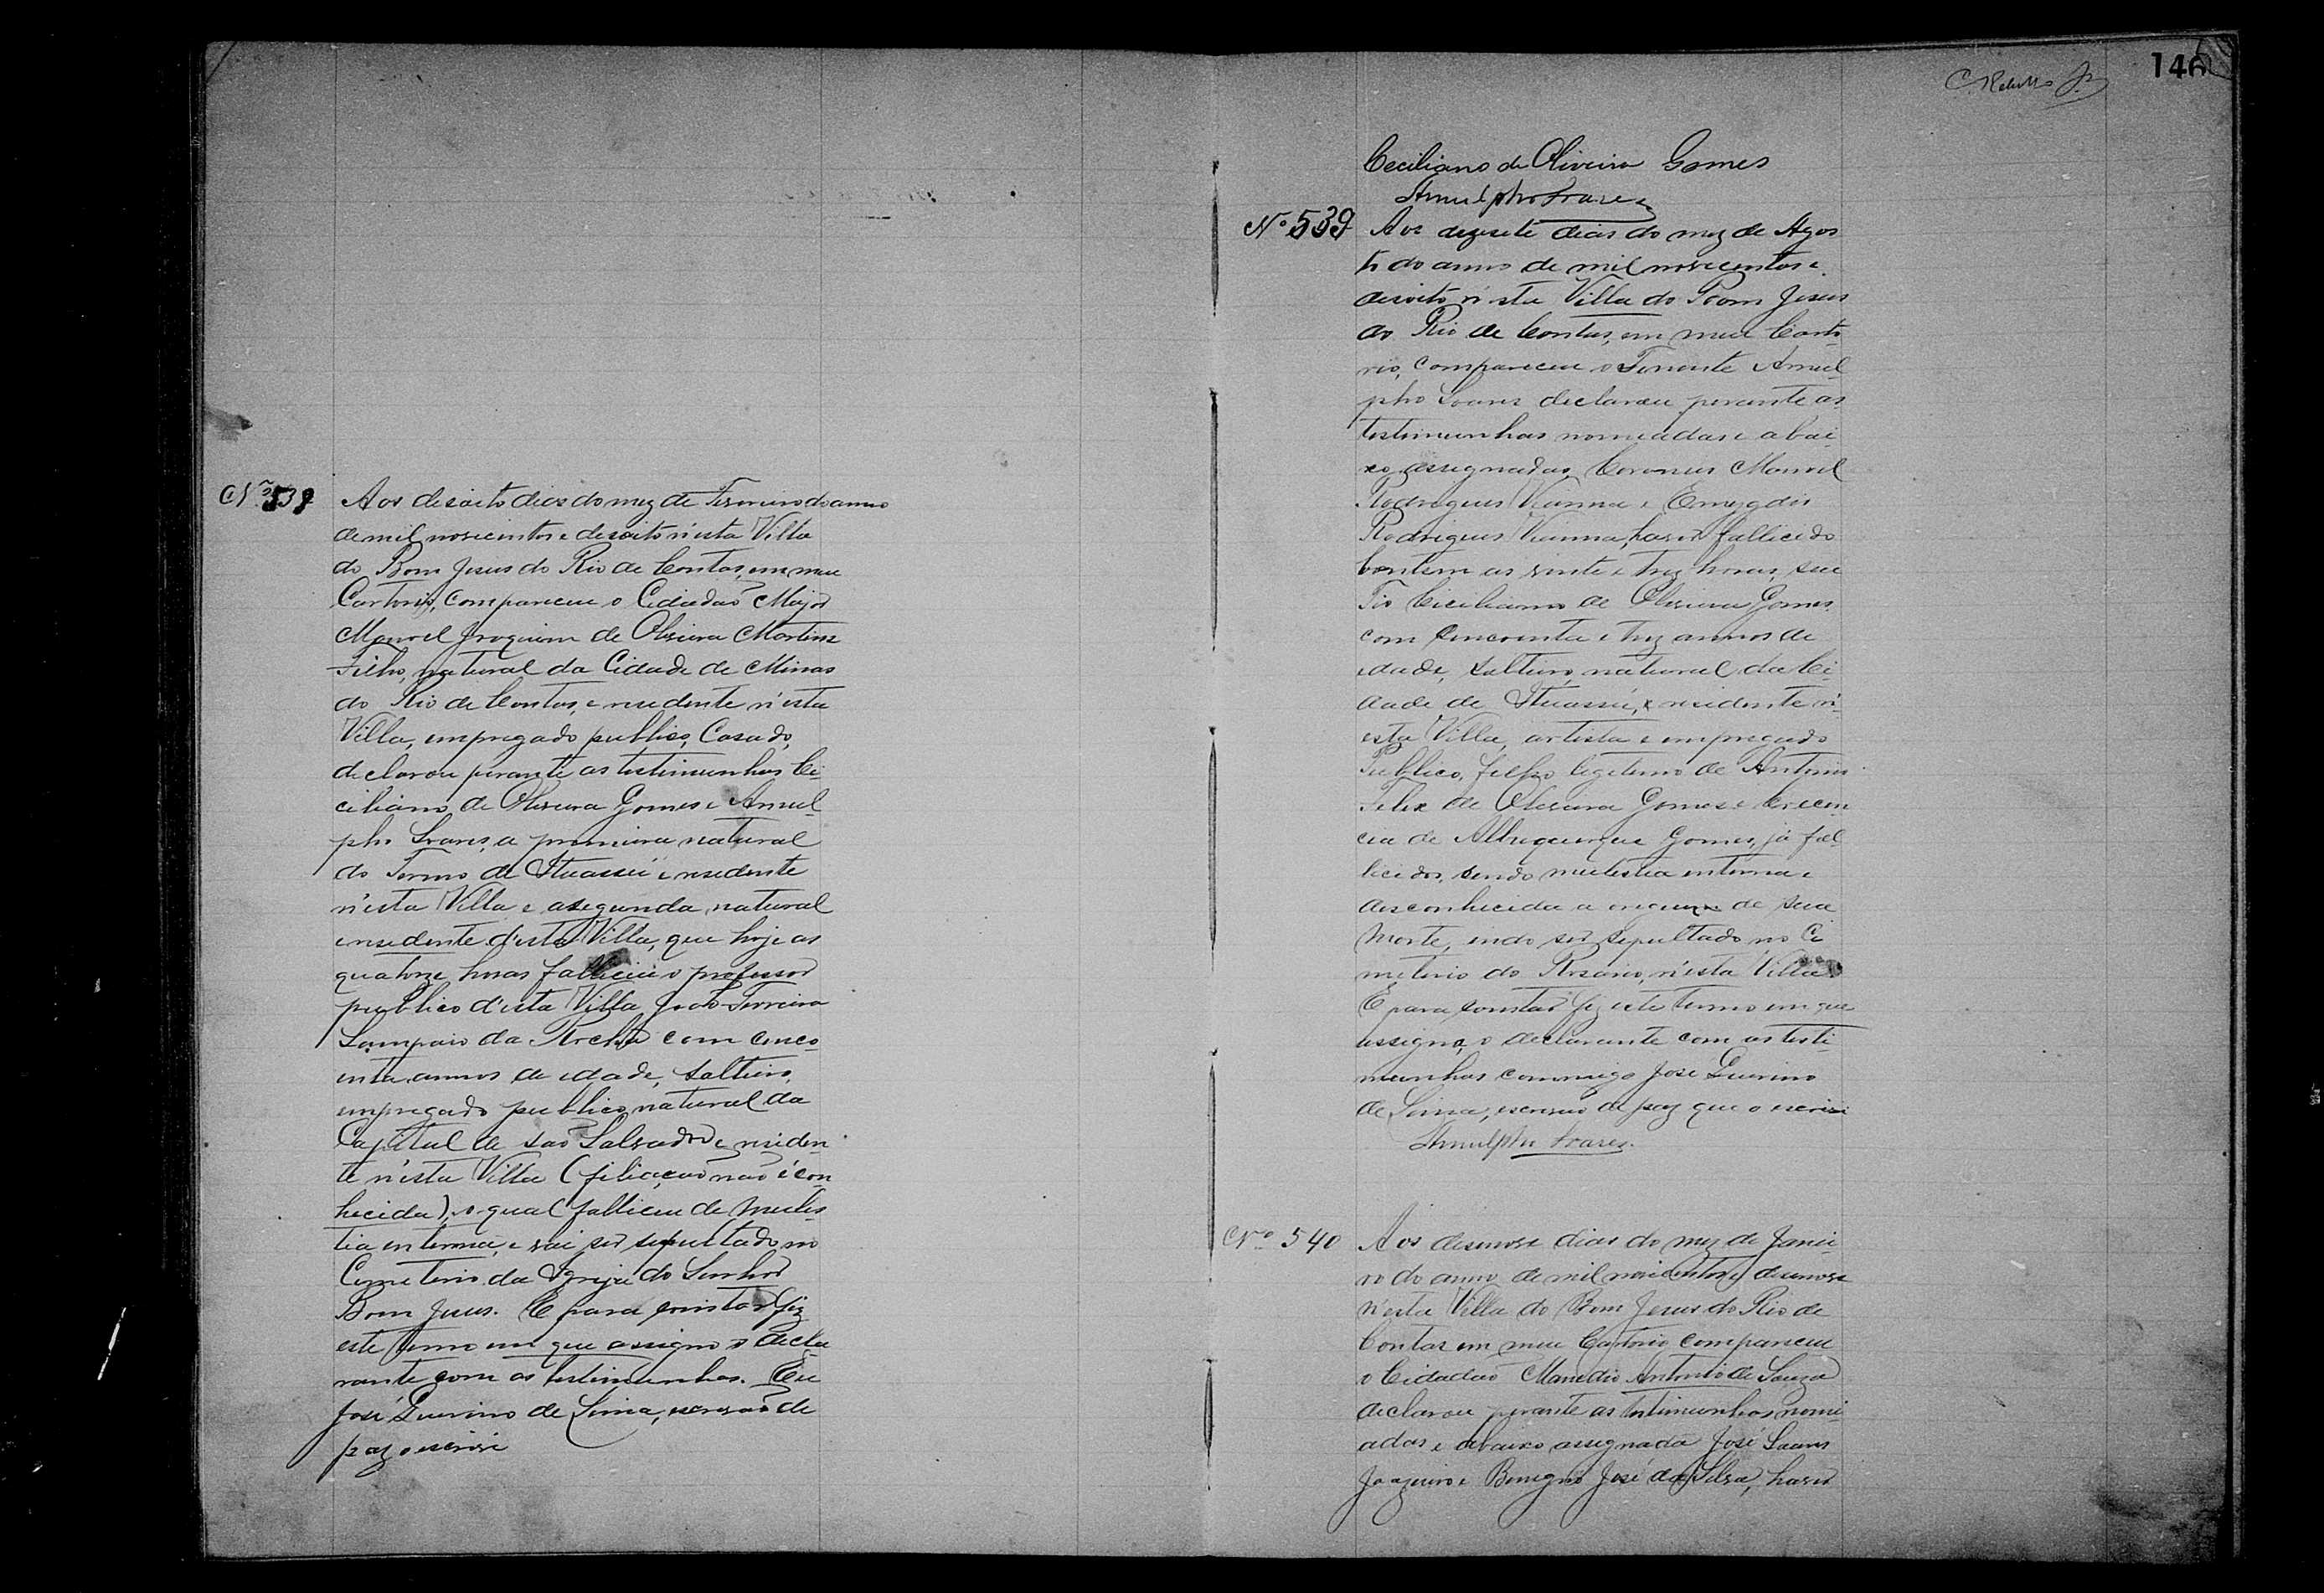 Nº 538
Aos desoito dias do mez de Fevereiro do anno
de mil novicentos e desoito n'esta Villa
do Bom Jesus do Rio de Contas, em meu
Cartorio, compareceu o Cidadão Major
Manoel Joaquim de Oliveira Martins
Filho, natural da Cidade de Minas
do Rio de Contas, e residente n'esta
Villa, empregado publico, Casado,
declarou perante as testimunhas Ce-
ciliano de Oliveira Gomes e Arnul-
pho Soares, a primeira natural
do Termo de Ituassú e residente
n'esta Villa e a segunda, natural
e residente d'esta Villa, que hoje as
quatorze horas falleceu o professor
publico d'esta Villa João Ferreira
Sampaio da Rocha com cinco-
enta annos de idade, solteiro,
empregado publico, natural da
Capital de São Salvador e residen-
te n'esta Villa (filiação não é con-
hecida), o qual falleceu de moles-
tia interna, e vai ser sepultado no
Cemeterio da Igreja do Senhor
Bom Jesus. E para constar fiz
este termo em que assigno o decla-
rante com as testimunhas. Eu
José Guerino de Lima, escrivão de
paz o escrivi
146
Ceciliano de Oliveira Gomes
Arnulpho Soares
Nº 539
Aos dezesete dias do mez de Agos
to do anno de mil novecentos e
desoito n'esta Villa do Bom Jesus
do Rio de Contas, em meu Carto-
rio, compareceu o Tenente Arnul-
pho Soares declarou perante as
testimunhas nomeadas e abai-
xo assignadas, Coroneis Manoel
Rodrigues Vianna e Emygdio
Rodrigues Vianna, haver fallicido
hontem as vinte e trez horas, seu
Tio Ciciliano de Oliveira Gomes
com cincoenta e trez annos de
idade, solteiro, natural da Ci-
dade de Ituassú, e residente n'-
esta Villa, artista e empregado
Publico, filho legitimo de Antonio
Felix de Oliveira Gomes e Crecen
cia de Albuquerque Gomes, já fal-
licidos, sendo mulestia interna e
desconhecida a origem de sua
morte, indo ser sepultado no Ci
miterio do Rosario, n'esta Villa.
E para constar fiz este termo em que
assigna, o declarante com as testi-
munhas commigo José Guerino
de Lima, escrivão de paz que o escrivi
Arnulpho Soares.
Nº 540
Aos desenove dias do mez de Janei-
ro do anno de mil novicentos e desenove
n'esta Villa do Bom Jesus do Rio de
Contas em meu Cartorio compareceu
o Cidadão Manedio Antonio de Souza
declarou perante as testimunhas nomi-
adas e abaixo assignada José Soares
Joazeiro e Benigno José da Silva, haver